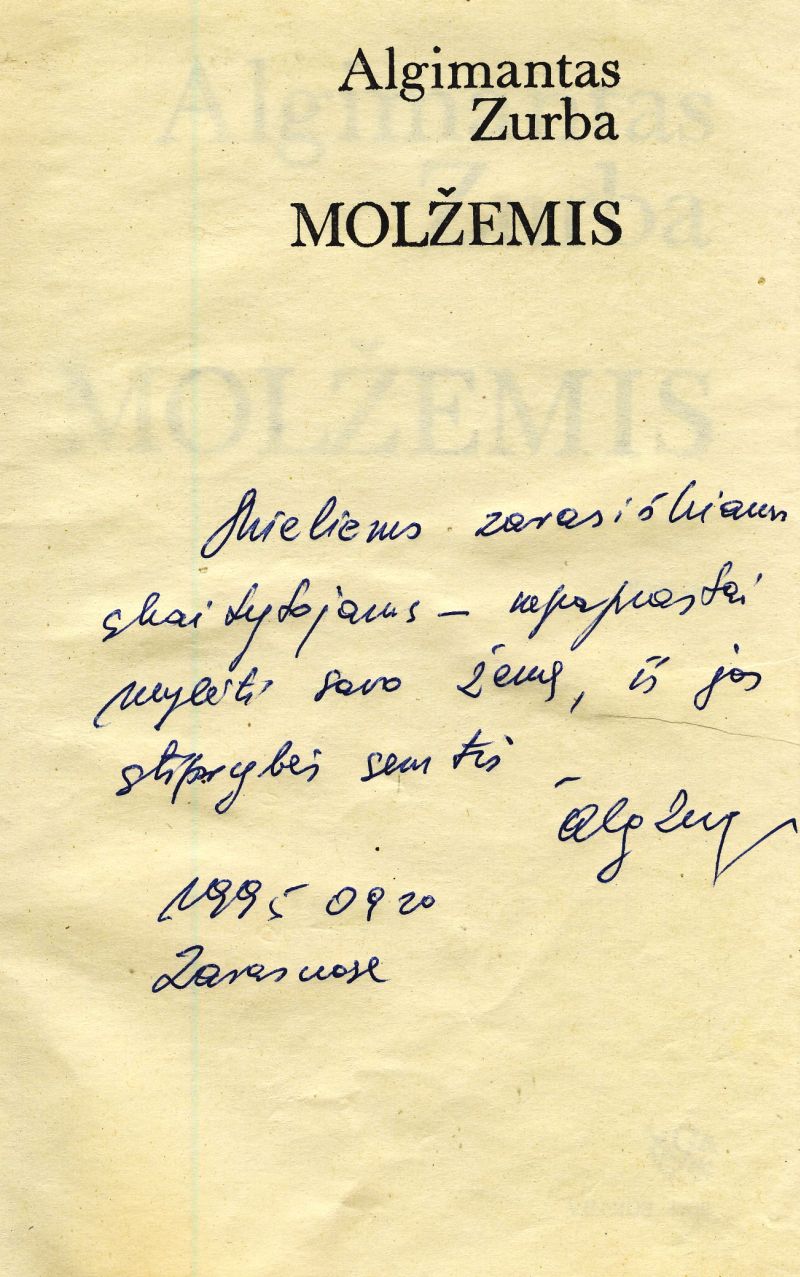 Algimantas
Zurba
MOLŽEMIS
Mieliems zarasiškiams
skaitytojams – nepaprastai
mylėti savo žemę, iš jos
stiprybės semtis
1995 09 20
Zarasuose